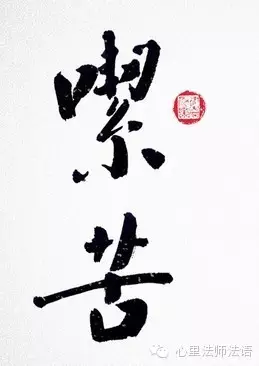 噄苦
心里法师法语